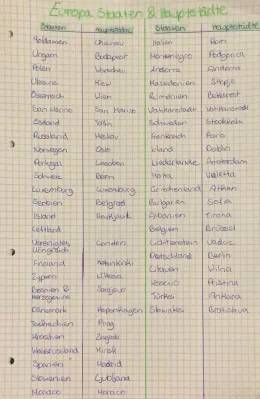 Europa Staaten & Hauptstädte
Staaten Hauptstädte Staaten Hauptstädte
Moldawien Chisinau Italien Rom
Ungarn Budapest Montenegro Podgorica
Polen Warschau Andorra Andorra
Ukraine Kiew Mazedonien Skopje
Österreich Wien Rumänien Bukarest
San Marino San Marino Vatikanstadt Vatikanstadt
Estland Talin Schweden Stockholm
Russland Moskau Frankreich Paris
Norwegen Oslo Irland Dublin
Portugal Lissabon Niederlande Amsterdam
Schweiz Bern Malta Valetta
Luxemburg Luxemburg Griechenland Athen
Serbien Belgrad Bulgarien Sofia
Island Reykjavik Albanien Tirana
Lettland Belgien Brüssel
Vereinigtes Königreich London Lichtenstein Vaduz
Deutschland Berlin
Finnland Helsinki Litauen Vilna
Zypern Kosovo Pristina
Bosnien & Herzegowina Sarajevo Türkei Ankara
Dänemark Kopenhagen Slowakei Bratislava
Tschechien Prag
Kroatien Zagreb
Weissrussland Minsk
Spanien Madrid
Slowenien Ljubljana
Monaco Monaco